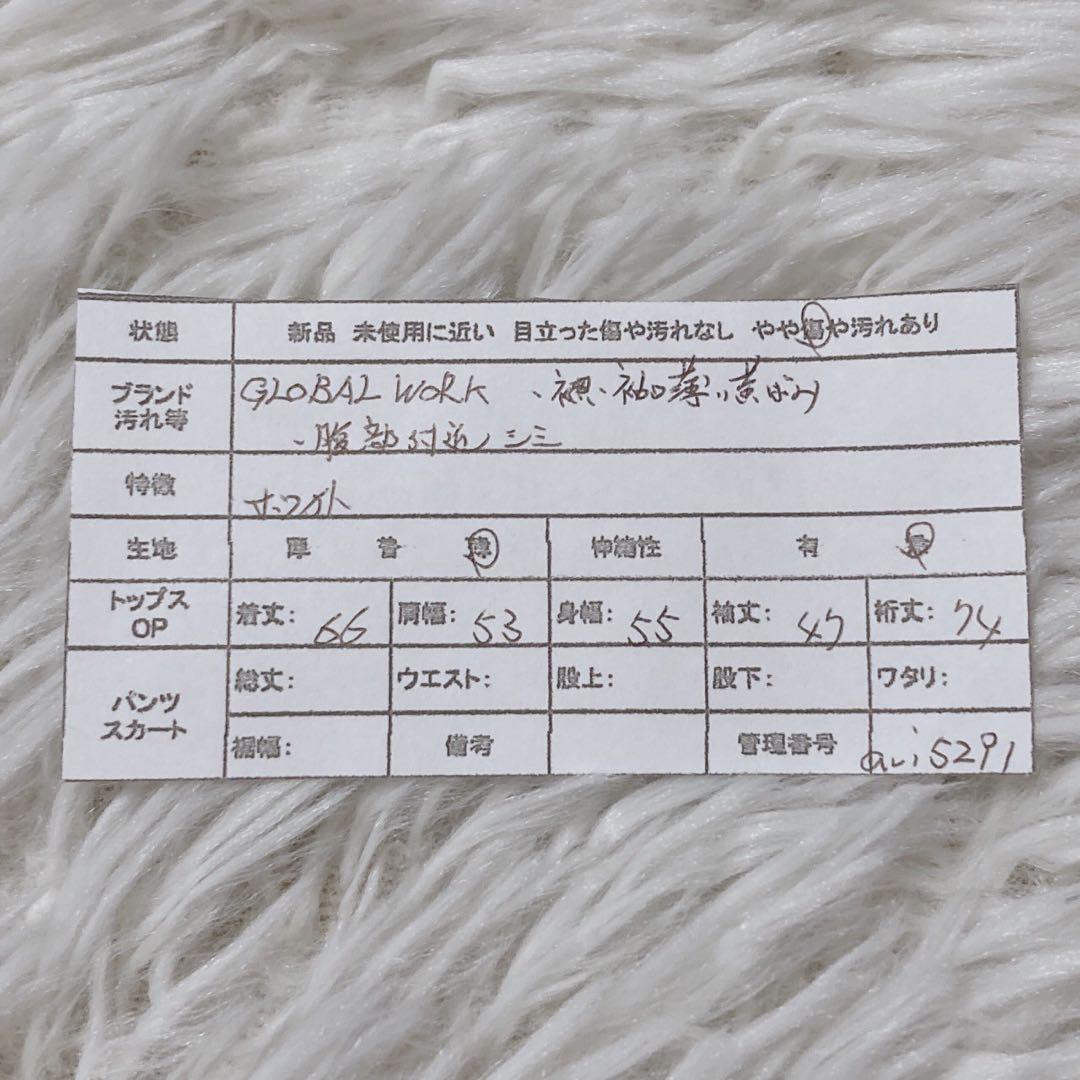 状態 新品 未使用に近い 目立った傷や汚れなし やや傷や汚れあり
ブランド
汚れ等
GLOBAL WORK 、襟、袖の薄い黄ばみ
、腹部付近ノシミ
特徴 ホワイト
生地 厚 普 薄 伸縮性 有 無
トップス
OP
着丈: 66 肩幅: 53 身幅: 55 袖丈: 47 裄丈: 74
パンツ
スカート
総丈: ウエスト: 股上: 股下: ワタリ:
裾幅: 備考 管理番号 avi5291